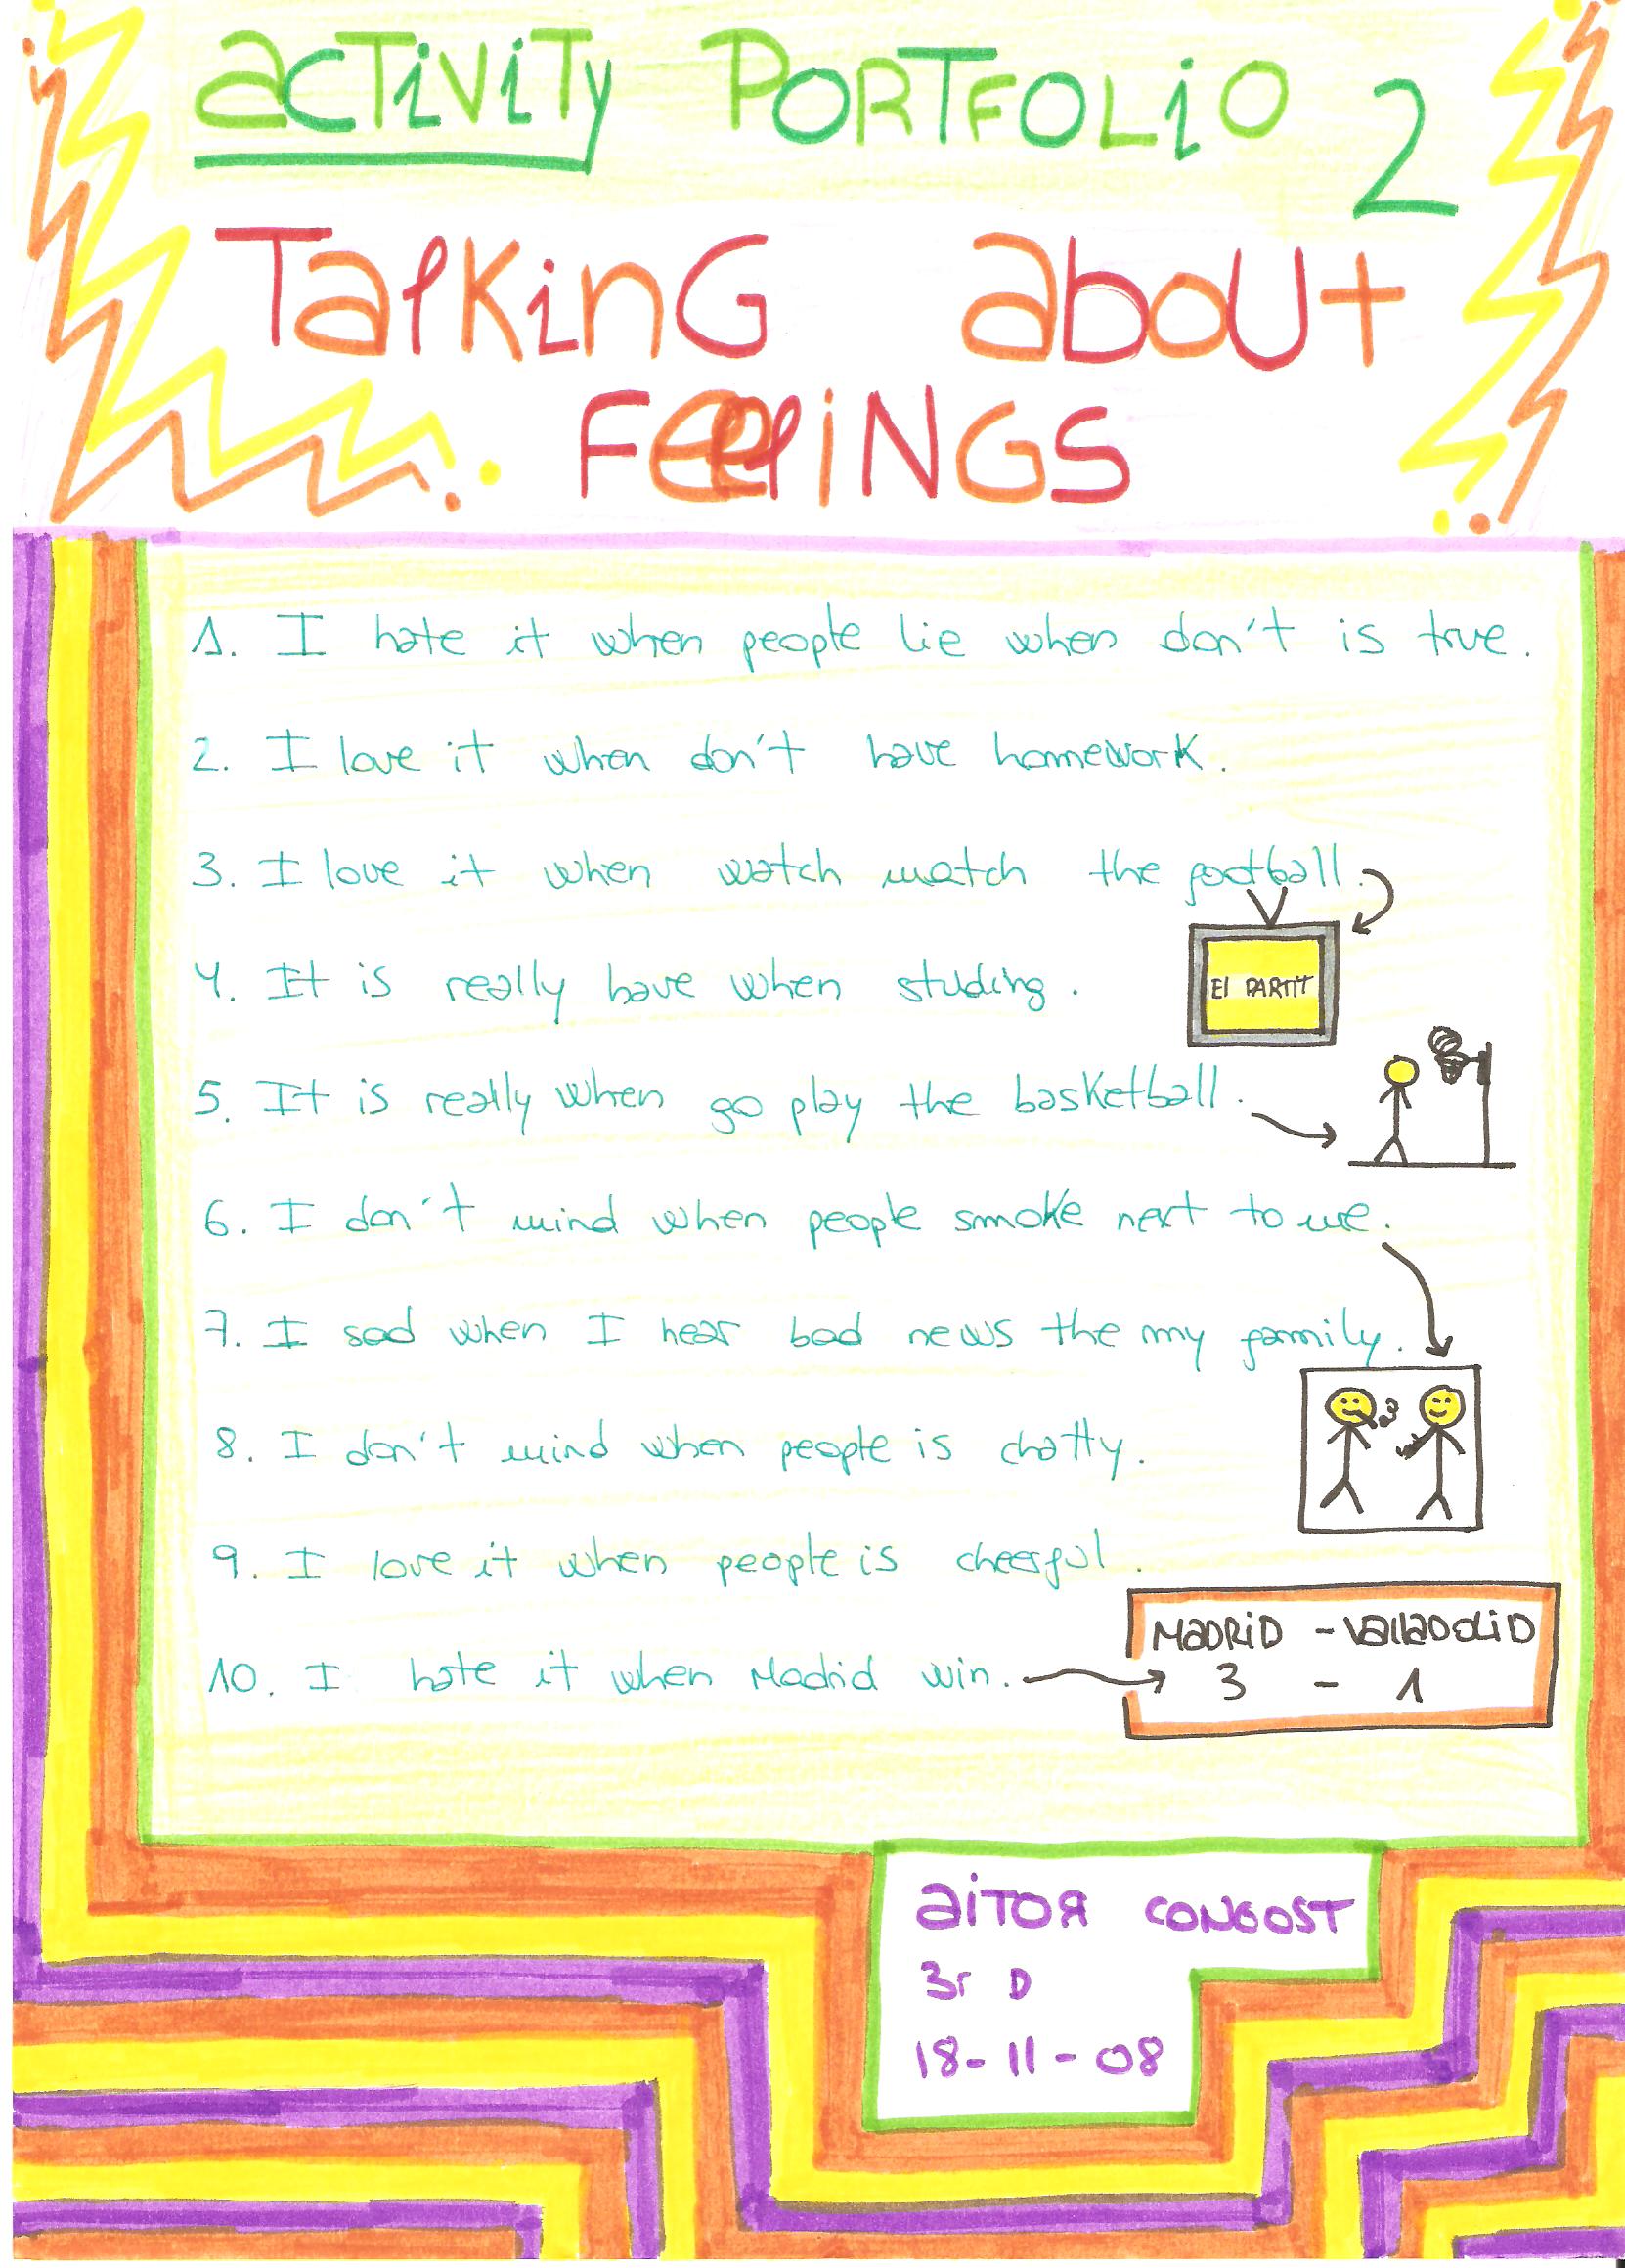 aCTiViTy PORTFOLiO 2
TalKinG about
FeeliNGS
1. I hate it when people lie when don't is true.
2. I love it when don't have homework.
3. I love it when watch match the football.
4. It is really have when studing.
El PARTIT
5. It is really when go play the basketball.
6. I don't mind when people smoke next to me.
7. I sad when I hear bad news the my family.
8. I don't mind when people is chatty.
9. I love it when people is cheerful.
10. I hate it when Madrid win.
MaDRiD - VallaDOLiD
3 - 1
aiTOR CONGOST
3r D
18-11-08